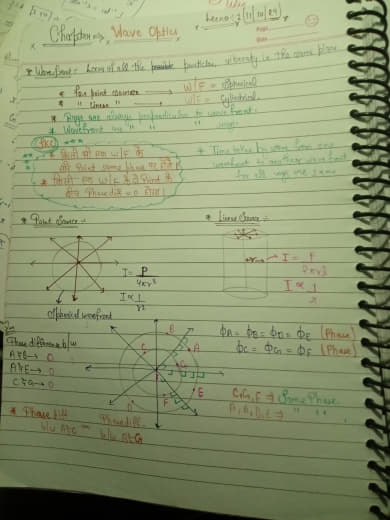 Chapter → Wave Optics
Lec no: 2 (11|10|24)
* Wavefront:- Locus of all the particles, vibrating in the same plane
* For point source → W/F = Spherical
* " linear " → W/F = Cylindrical.
* Rays are always perpendicular to wavefront.
* Wavefront " " " rays
* किसी भी एक W/F के
सभी Point same phase पर होते
* किसी एक W/F के दो Point के
बीच Phase diff = 0 होगा
* Time taken by wave from one
wavefront to another wavefront
for all rays are same
* Point Source:-
* Linear Source:-
I = P/4πr²
I ∝ 1/r²
Spherical wavefront
r
I = P/2πrl
I ∝ 1/r
Phase difference b/w
A & B → 0
A & E → 0
C & G → 0
B
A
C
G
E
F
D
ϕA = ϕB = ϕD = ϕE (Phase)
ϕC = ϕG = ϕF (Phase)
C, G, F ⇒ Same Phase
A, B, D, E ⇒ " "
* Phase diff = Phase diff
b/w A & C b/w A & G